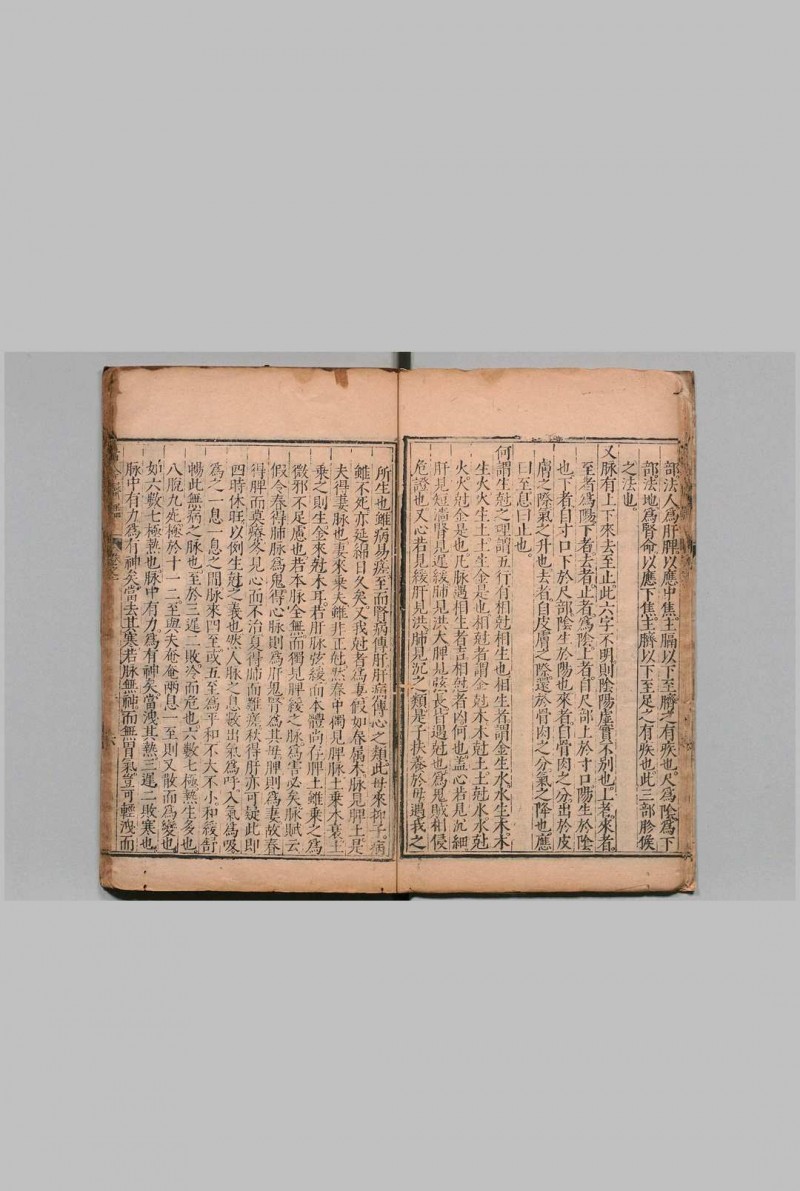 部法人爲肝脾以應中焦主膈以下至臍之有疾也尺爲陰爲下
部法地爲腎命以應下焦主臍以下至足之有疾也此三部胗候
之法也
又脉有上下來去至止此六字不明則陰陽虛實不別也上者來者
至者爲陽下者去者止者爲陰上者自尺部上於寸口陽生於陰
也下者自寸口下於尺部陰生於陽也來者自骨肉之分出於皮
膚之際氣之升也去者自皮膚之際還於骨肉之分氣之降也應
曰至息曰止也
何謂生尅之理謂五行有相尅相生也相生者謂金生水水生木木
生火火生土土生金是也相尅者謂金尅木木尅土土尅水水尅
火火尅金是也凡脉遇相生者吉相尅者凶何也盖心若見沉細
肝見短濇腎見遲緩肺見洪大脾見弦長皆遇尅也爲鬼賊相侵
危證也又心若見緩肝見洪肺見沉之類是子扶養於母過我之
所生也雖病易瘥至而腎病傳肝肝病傳心之類此母來抑子病
雖不死亦延綿日久矣又我尅者爲妻假如春屬木脉見脾土是
夫得妻脉也妻來乗夫雖非正尅然春中偶見脾脉土乗木衰土
乗之則生金來尅木耳若肝脉弦緩而本體尚存脾土雖乗之爲
微邪不足慮也若本脉全無而獨見脾緩之脉爲害必矣脉賦云
假令春得肺脉爲鬼得心脉則爲肝兒腎爲其母脾則爲妻故春
得脾而莫療冬見心而不治夏得肺而難瘥秋得肝亦可疑此即
四時休旺以例生尅之義也然人脉之息數出氣爲呼入氣爲吸
爲之一息一息之間脉來四至或五至爲平和不大不小和緩舒
暢此無病之脉也至於三遲二敗冷而危也六數七極熱生多也
八脫九死極於十一二至與夫奄奄兩息一至則又散而爲變也
如六數七極熱也脉中有力爲有神矣當洩其熱三遲二敗寒也
脉中有力爲有神矣當去其寒若脉無神而無胃氣豈可輕洩而